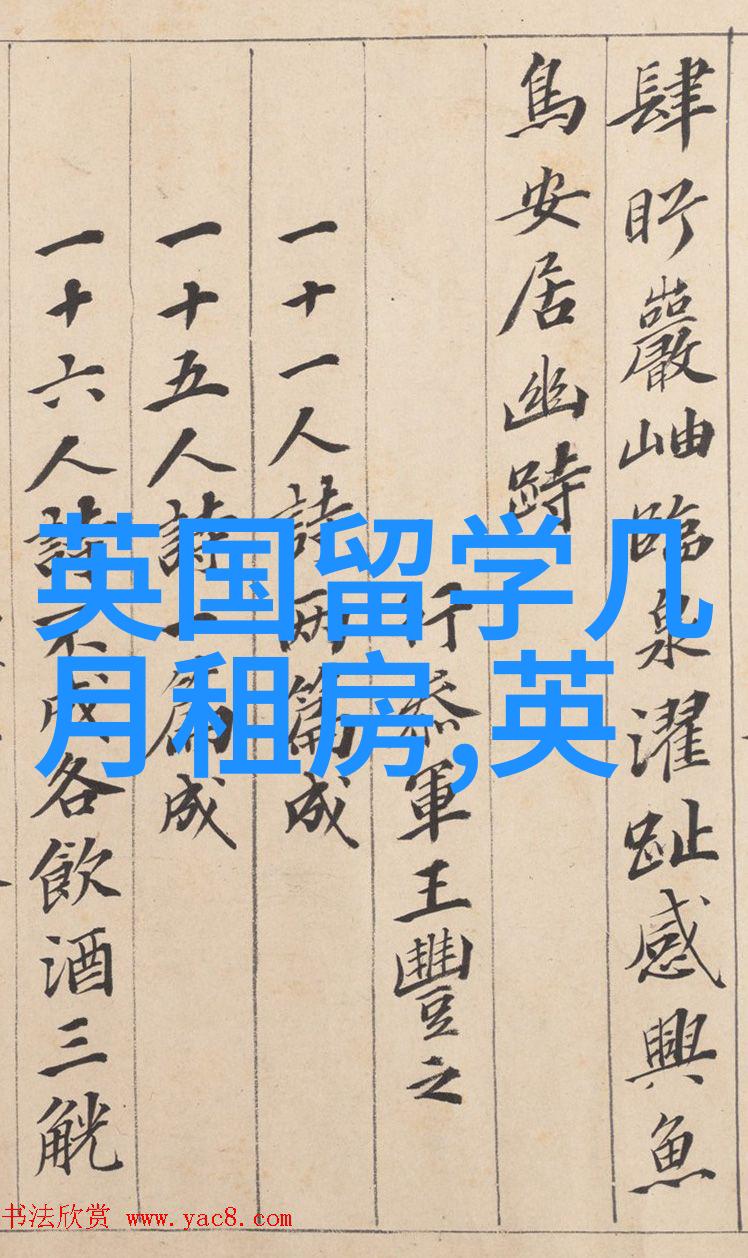 肆眄巖岫臨泉濯趾感興魚
鳥安居幽跱
行叅軍王豐之
一十一人詩兩篇成
一十五人詩一篇成
一十六人詩不成各飲酒三觥
英国留学几
月租房,英
书法欣赏 www.yac8.com